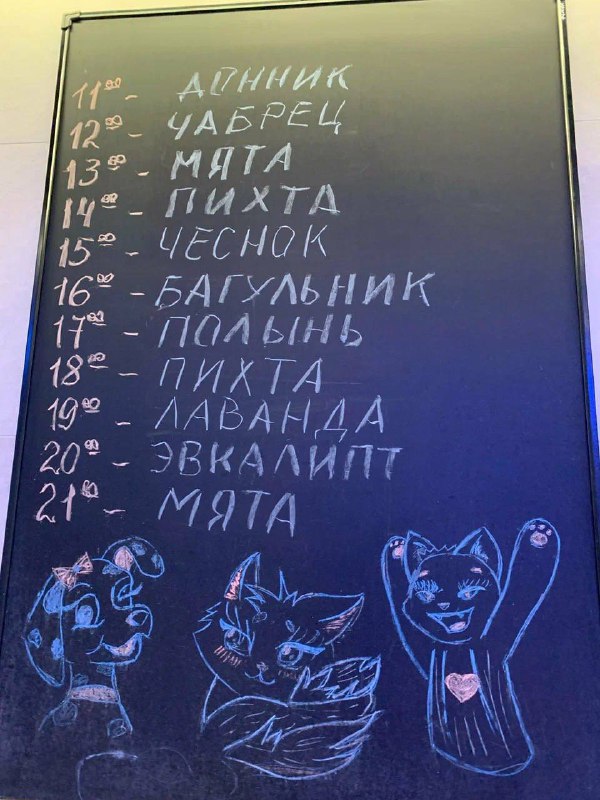 11⁰⁰ - ДОННИК
12⁰⁰ - ЧАБРЕЦ
13⁰⁰ - МЯТА
14⁰⁰ - ПИХТА
15⁰⁰ - ЧЕСНОК
16⁰⁰ - БАГУЛЬНИК
17⁰⁰ - ПОЛЫНЬ
18⁰⁰ - ПИХТА
19⁰⁰ - ЛАВАНДА
20⁰⁰ - ЭВКАЛИПТ
21⁰⁰ - МЯТА